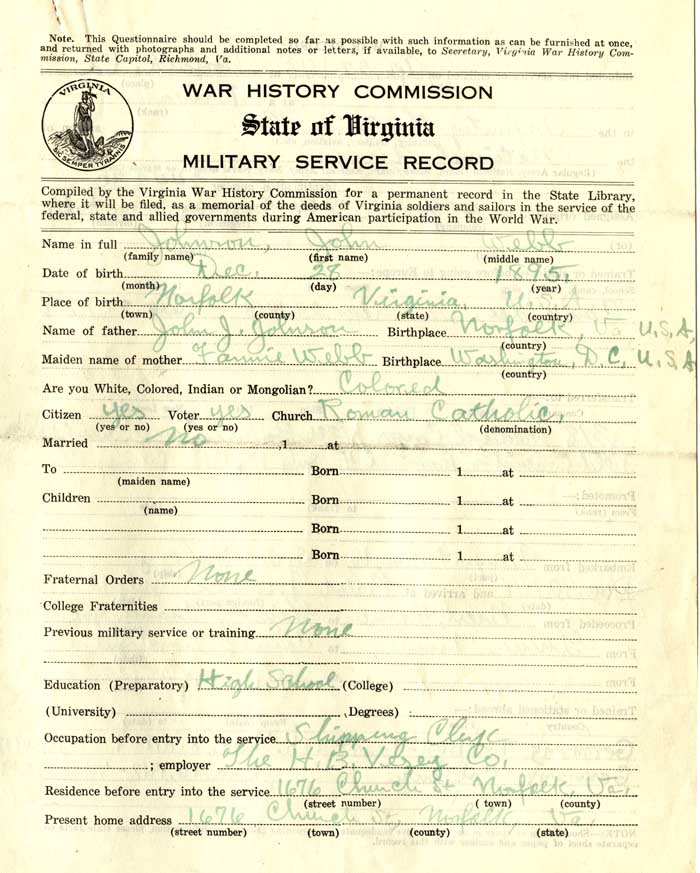 Note. This Questionnaire should be completed so far as possible with such information as can be furnished at once,
and returned with photographs and additional notes or letters, if available, to Secretary, Virginia War History Com-
mission, State Capitol, Richmond, Va.
VIRGINIA
SIC SEMPER TYRANNIS
WAR HISTORY COMMISSION
State of Virginia
MILITARY SERVICE RECORD
Compiled by the Virginia War History Commission for a permanent record in the State Library,
where it will be filed, as a memorial of the deeds of Virginia soldiers and sailors in the service of the
federal, state and allied governments during American participation in the World War.
Name in full Johnson, John Webb
(family name) (first name) (middle name)
Date of birth Dec. 28 1895,
(month) (day) (year)
Place of birth Norfolk Virginia, U.S.A,
(town) (county) (state) (country)
Name of father John J. Johnson Birthplace Norfolk, Va U.S.A,
(country)
Maiden name of mother Fannie Webb Birthplace Washington, D.C, U.S.A
(country)
Are you White, Colored, Indian or Mongolian? Colored
Citizen yes Voter yes Church Roman Catholic,
(yes or no) (yes or no) (denomination)
Married No ,1 at
To Born 1 at
(maiden name)
Children Born 1 at
(name)
Born 1 at
Born 1 at
Fraternal Orders None
College Fraternities
Previous military service or training None
Education (Preparatory) High School (College)
(University) , Degrees)
Occupation before entry into the service Shipping Clerk
; employer The H. B. Co,
Residence before entry into the service 1676 Church St Norfolk, Va.
(street number) ( town) (county)
Present home address 1676 Church St, Norfolk, Va.
(street number) (town) (county) (state)